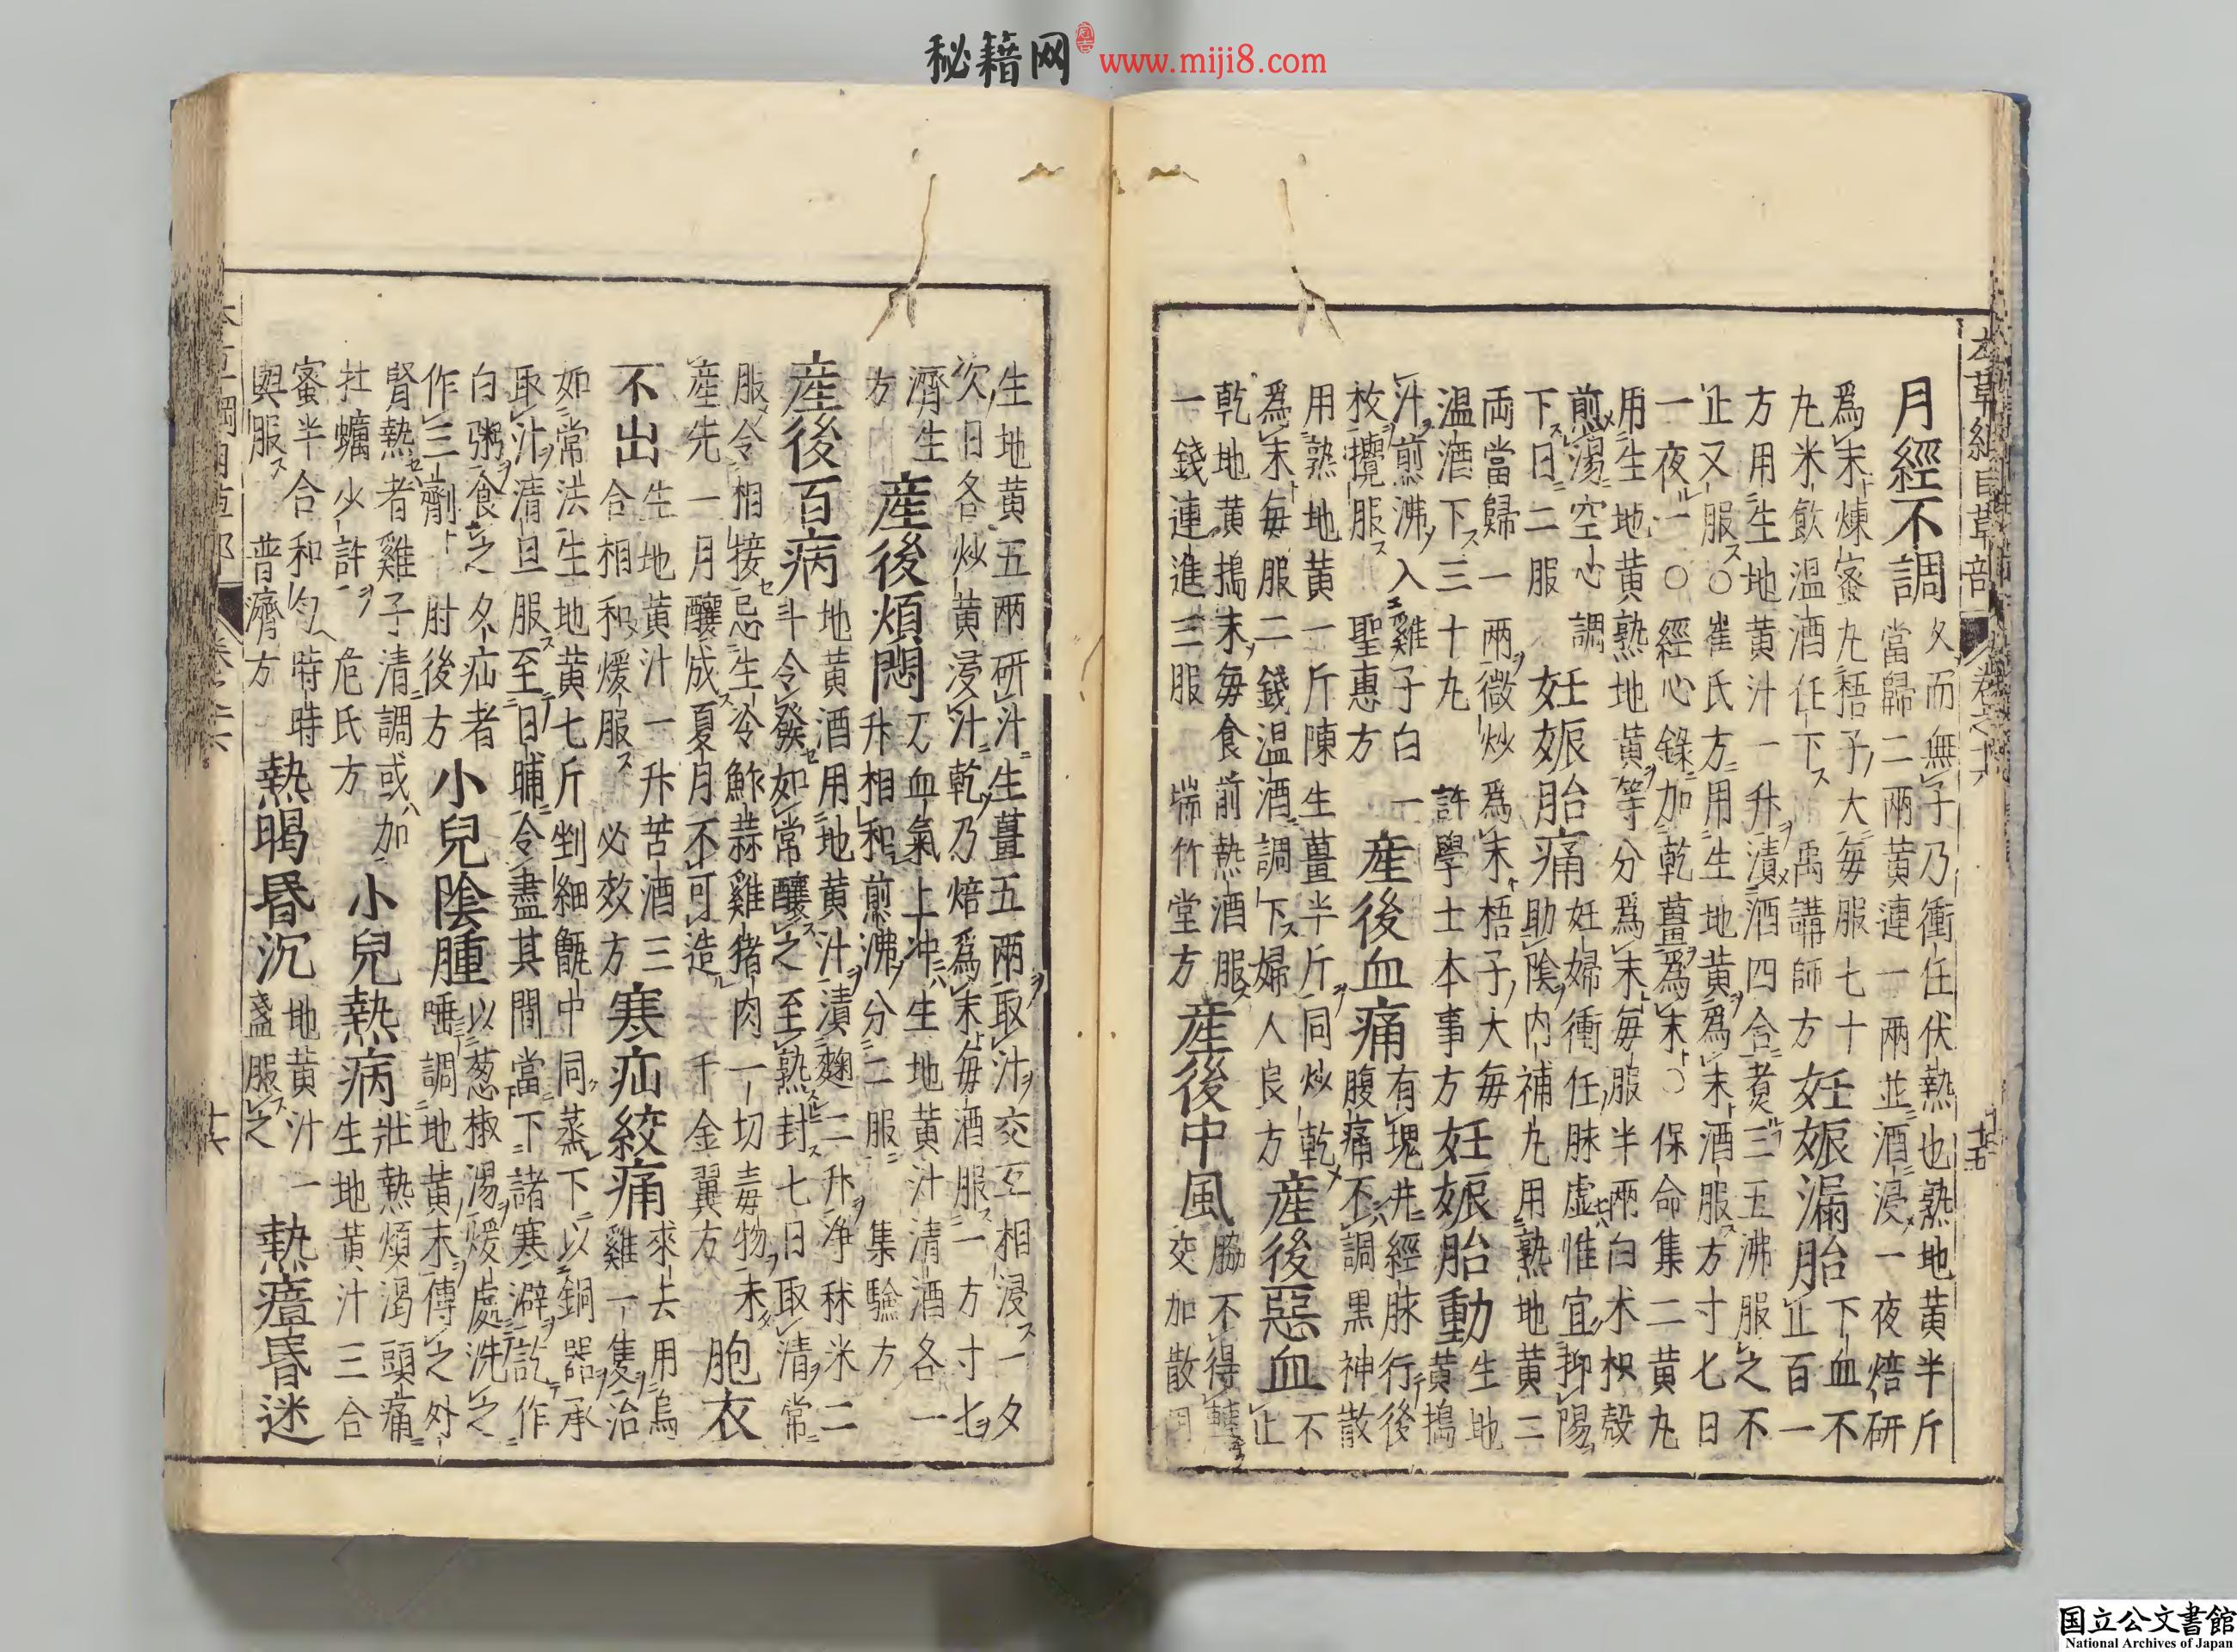 秘籍网 www.miji8.com
本草綱目草部 卷之十六 十五
月經不調
久而無子乃衝任伏熱也熟地黄半斤
當歸二兩黄連一兩並酒浸一夜焙研
爲末煉蜜丸梧子大毎服七十
丸米飲温酒任下 禹講師方
妊娠漏胎
下血不
止百一
方用生地黄汁一升漬酒四合煮三五沸服之不
止又服○崔氏方用生地黄爲末酒服方寸七日
一夜一○經心錄加乾薑爲末○保命集二黄丸
用生地黄熟地黄等分爲末毎服半兩白术枳殻
煎湯空心調
下日二服
妊娠胎痛
妊婦衝任脉虚惟宜抑陽
助陰内補丸用熟地黄二
兩當歸一兩微炒爲末梧子大毎
温酒下三十丸 許學士本事方
妊娠胎動
生地
黄搗
汁煎沸入雞子白一
枚攪服 聖惠方
産後血痛
有瑰并經脉行後
腹痛不調黒神散
用熟地黄一斤陳生薑半斤同炒乾
爲末毎服二錢温酒調下婦人良方
産後惡血
不
止
乾地黄搗末毎食前熱酒服
一錢連進三服 瑞竹堂方
産後中風
脇不得轉
交加散用
生地黄五兩研汁生薑五兩取汁交互相浸一夕
次日各炒黄浸汁乾乃焙爲末毎酒服一方寸七
濟生
方
産後煩悶
乃血氣上冲生地黄汁清酒各一
升相和煎沸分二服 集驗方
産後百病
地黄酒用地黄汁漬麹二升浄秫米二
斗令發如常釀之至熟封七日取清常
服令相接忌生冷鮓蒜雞猪肉一切毒物未
産先一月釀成夏月不可造 千金翼方
胞衣
不出
生地黄汁一升苦酒三
合相和煖服 必效方
寒疝絞痛
來去用烏
雞一隻治
如常法生地黄七斤剉細甑中同蒸下以銅器承
取汁清旦服至日晡令盡其間當下諸寒澼訖作
白粥食之久疝者
作三劑 肘後方
小兒陰腫
以葱椒湯煖處洗之
唾調地黄末傅之外
腎熱者雞子清調或加
牡蠣少許 危氏方
小兒熱病
壯熱煩渴頭痛
生地黄汁三合
蜜半合和匀時時
與服 普濟方
熱暍昏沉
地黄汁一
盞服之
熱瘴昏迷
国立公文書館
National Archives of Japan